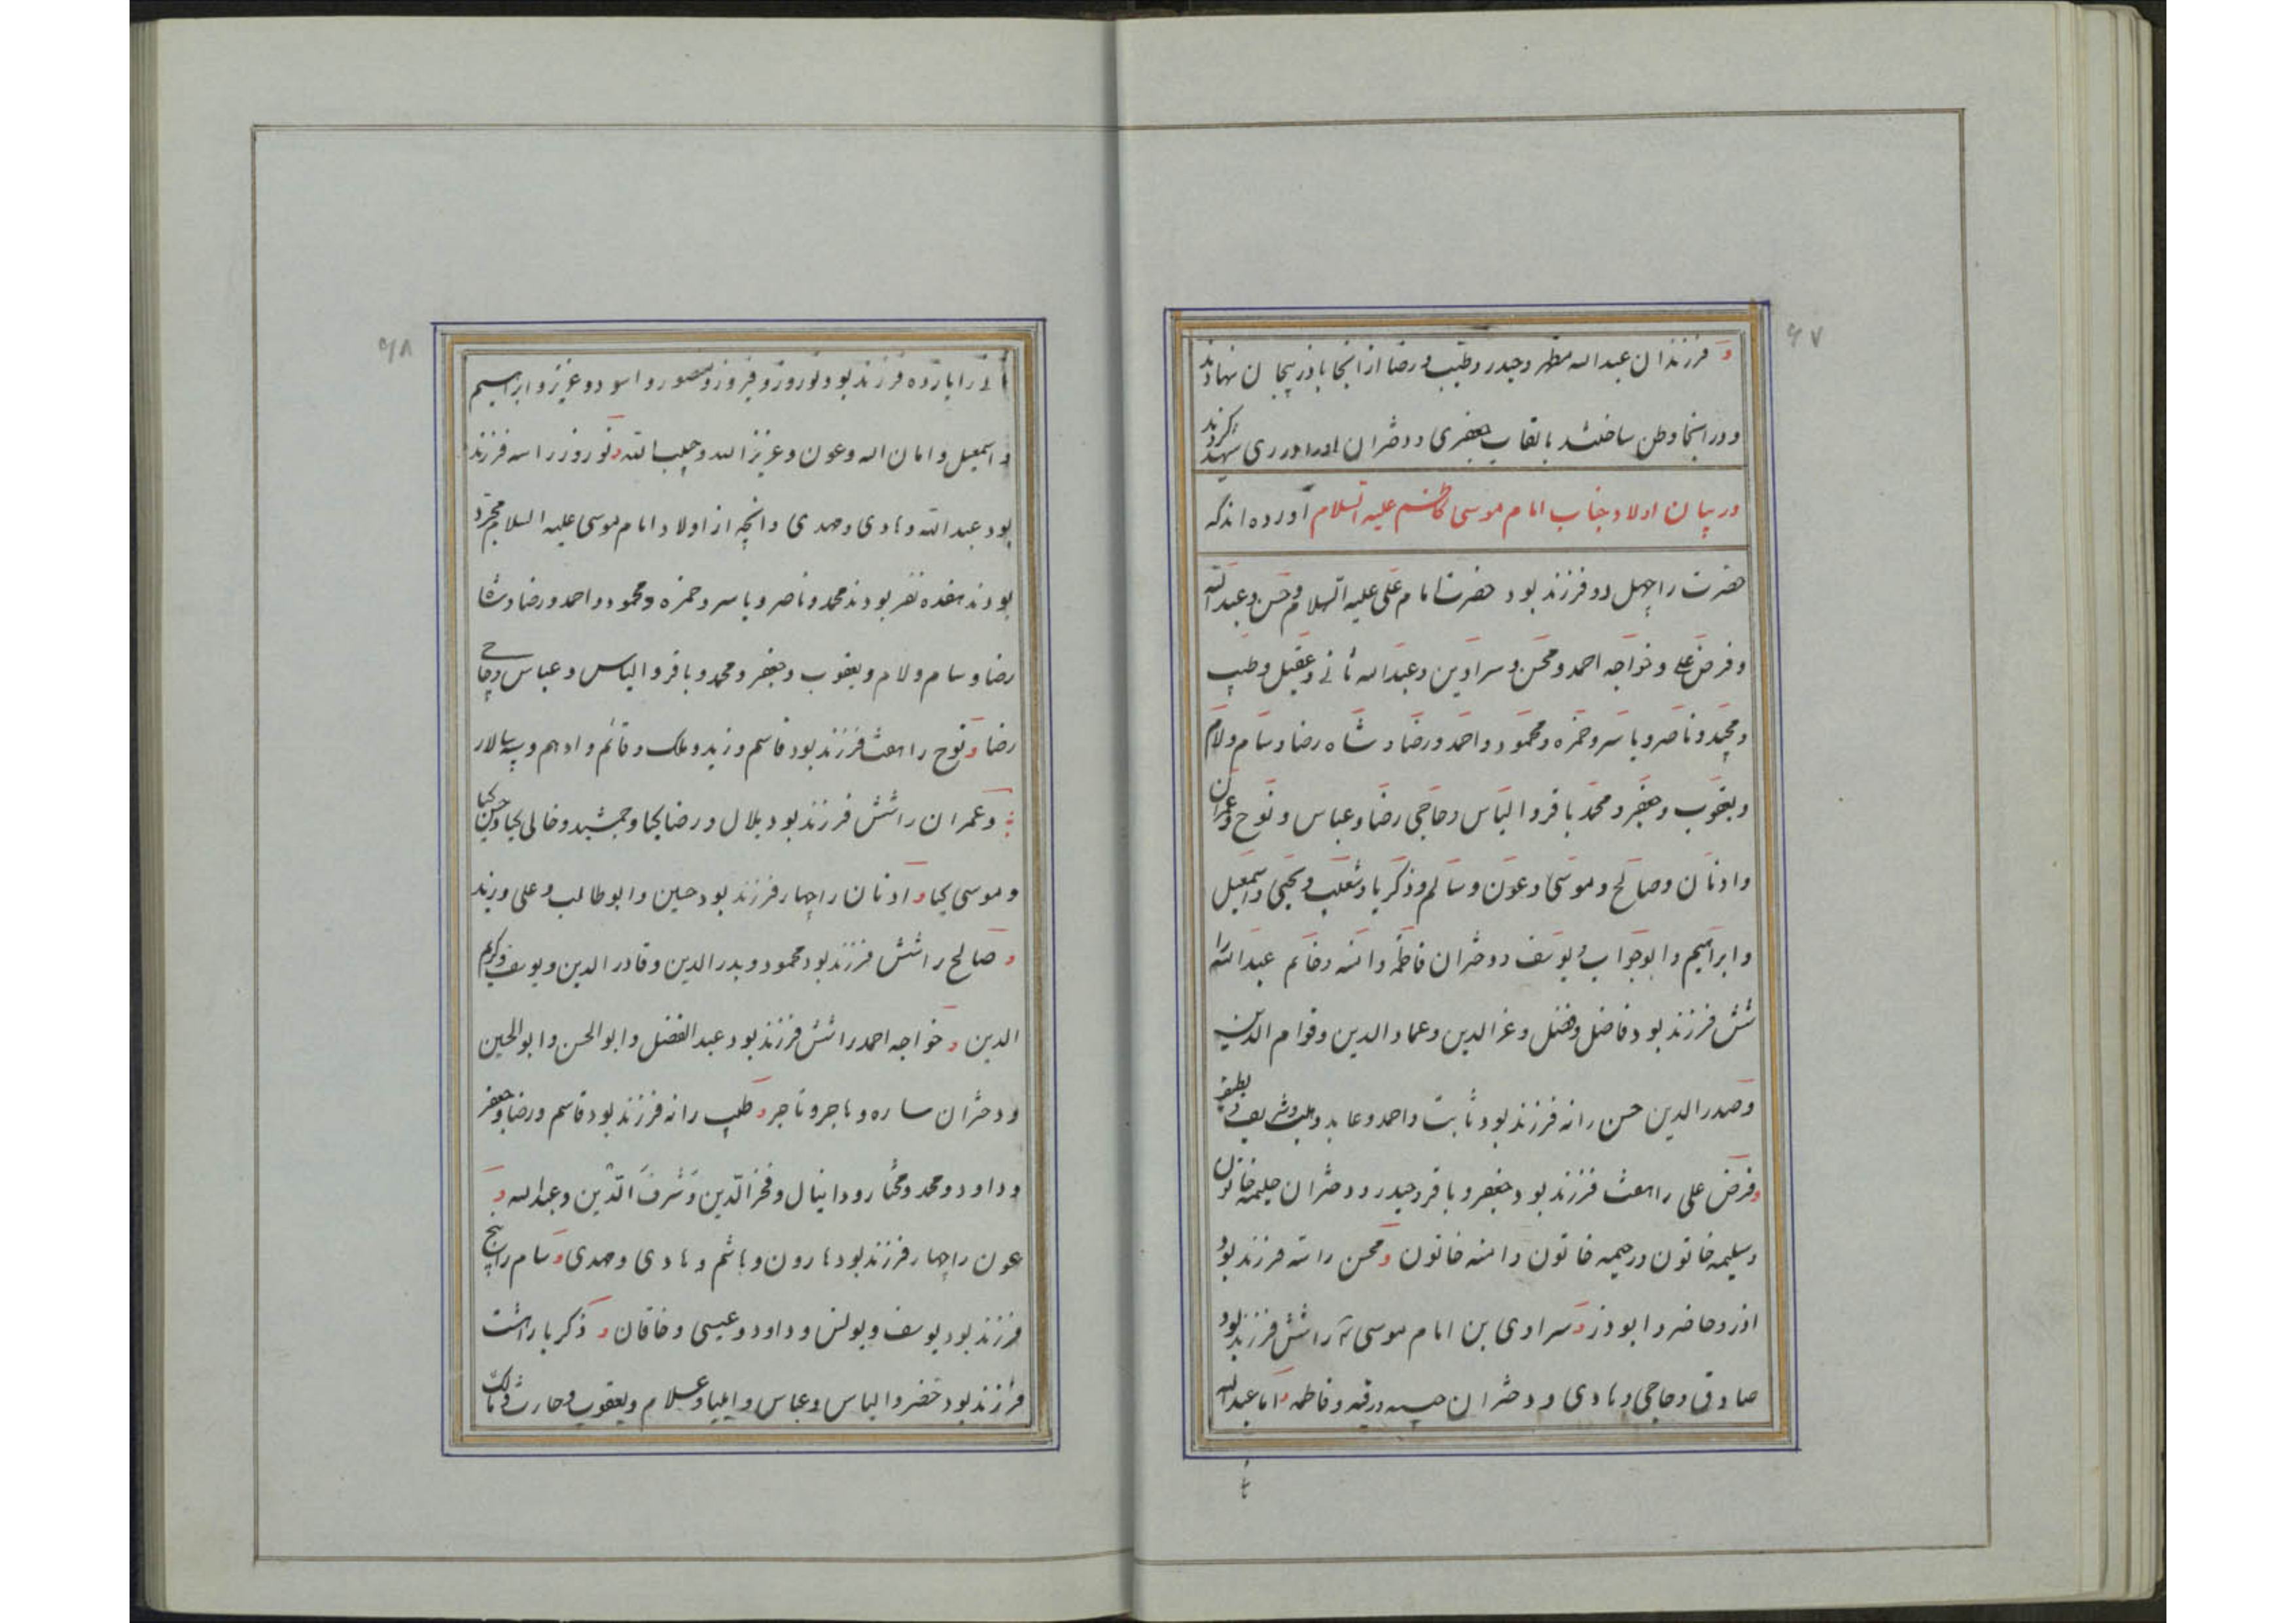 ۶۷
و فرزندان عبداله مطهر وحیدر وطیب ورضا از انجا باذربیجان نهادند
ودر انجا وطن ساختند بالقاب جعفری ودختران اورا در ری شهید کردند
در بیان اولاد جناب امام موسی کاظم علیه السلام اورده اند که
حضرت را چهل دو فرزند بود حضرت امام علی علیه السلام وحسن وعبدالله
وفرض علی وخواجه احمد ومحسن وسراوین وعبداله ثانی وعقیل وطیب
ومحمد وناصر ویاسر وحمزه ومحمود واحمد ورضا وشاه رضا وسام ولام
ویعقوب وجعفر ومحمد باقر والیاس وحاجی رضا وعباس ونوح وعمران
وادنان وصالح وموسی وعون وسالم وذکریا وثعلب ویحیی واسمعیل
وابراهیم وابوجواب ویوسف ودختران فاطمه وامنه وخانم عبدالله را
شش فرزند بود فاضل وفضل وعزالدین وعمادالدین وقوام الدین
وصدرالدین حسن را نه فرزند بود ثابت واحمد وعابد وشریف
وفرض علی را هفت فرزند بود جعفر وباقر وحیدر ودختران حلیمه خاتون
وسلیمه خاتون ورحیمه خاتون وامنه خاتون ومحسن را سه فرزند بود
اذر وحاضر وابوذر وسراوی بن امام موسی را شش فرزند بود
صادق وحاجی وهادی ودختران ورقیه وفاطمه واما عبداله
۶۸
را یازده فرزند بود نوروز وفیروز ومنصور واسود وعزیز وابراهیم
واسمعیل وامان اله وعون وعزیز الله وحبیب الله ونوروز را سه فرزند
بود عبدالله وهادی ومهدی وانچه از اولاد امام موسی علیه السلام مجرد
بودند هفده نفر بودند محمد وناصر ویاسر وحمزه ومحمود واحمد ورضا وشاه
رضا وسام ولام ویعقوب وجعفر ومحمد وباقر والیاس وعباس وحاجی
رضا ونوح را هفت فرزند بود قاسم وزید وملک وقائم وادهم وسپهسالار
وعمران را شش فرزند بود بلال ورضا کیا وجمشید وخالی کیا وحسن کیا
وموسی کیا وادنان را چهار فرزند بود حسین وابوطالب وعلی وزید
وصالح را شش فرزند بود محمود وبدرالدین وقادر الدین ویوسف وکریم
الدین وخواجه احمد را شش فرزند بود عبد الفضل وابوالحسن وابوالحسین
ودختران ساره وهاجر وتاجر وطیب را نه فرزند بود قاسم ورضا وجعفر
وداود ومحمد ومختار ودانیال وفخرالدین وشرف الدین وعبداله و
عون را چهار فرزند بود هارون وهاشم وهادی ومهدی وسام را پنج
فرزند بود یوسف ویونس وداود وعیسی وخاقان وذکریا را هشت
فرزند بود خضر والیاس وعباس وایلیا وعلام ویعقوب وحارث ومالک